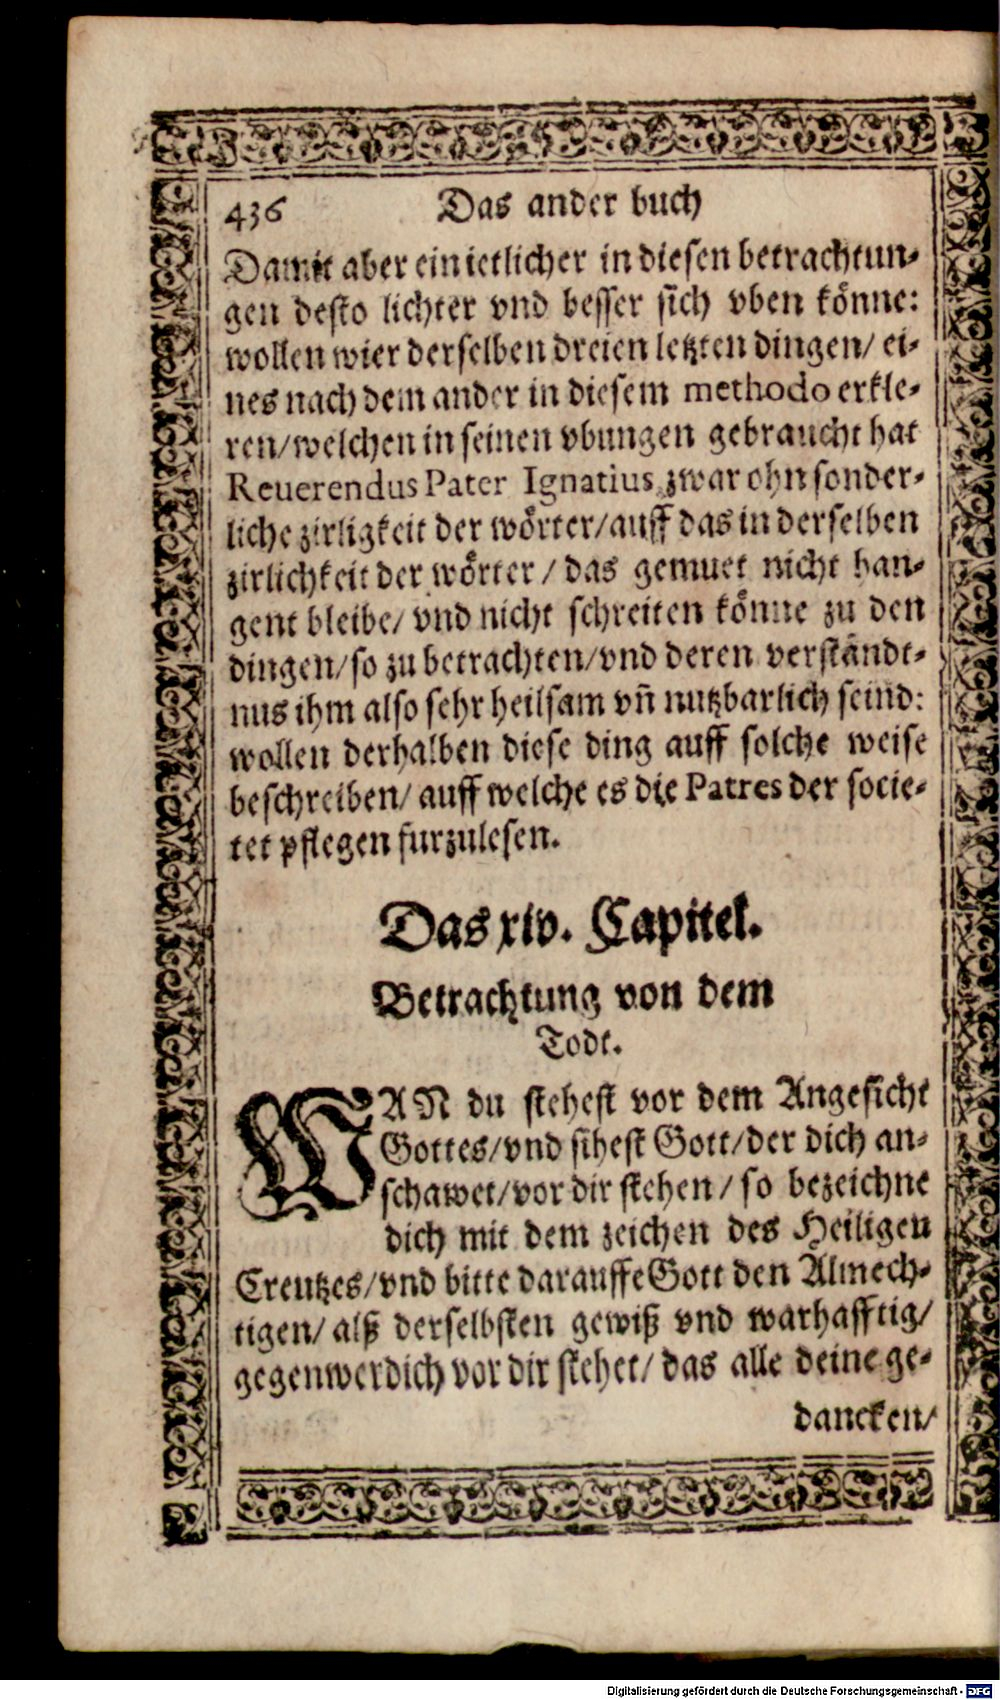 436 Das ander buch
Damit aber ein ietlicher in diesen betrachtun-
gen desto lichter vnd besser sich vben könne:
wollen wier derselben dreien letzten dingen/ ei-
nes nach dem ander in diesem methodo erkle-
ren/welchen in seinen vbungen gebraucht hat
Reuerendus Pater Ignatius zwar ohn sonder-
liche zirligkeit der wörter/auff das in derselben
zirlichkeit der wörter / das gemuet nicht han-
gent bleibe/ vnd nicht schreiten könne zu den
dingen/so zu betrachten/vnd deren verständt-
nus ihm also sehr heilsam vñ nutzbarlich seind:
wollen derhalben diese ding auff solche weise
beschreiben/ auff welche es die Patres der socie-
tet pflegen furzulesen.
Das xiv. Capitel.
Betrachtung von dem
Todt.
WAN du stehest vor dem Angesicht
Gottes/vnd sihest Gott/der dich an-
schawet/vor dir stehen/ so bezeichne
dich mit dem zeichen des Heiligen
Creutzes/vnd bitte darauffe Gott den Almech-
tigen/ alß derselbsten gewiß vnd warhafftig/
gegenwerdich vor dir stehet/ das alle deine ge-
dancken/
Digitalisierung gefördert durch die Deutsche Forschungsgemeinschaft - DFG